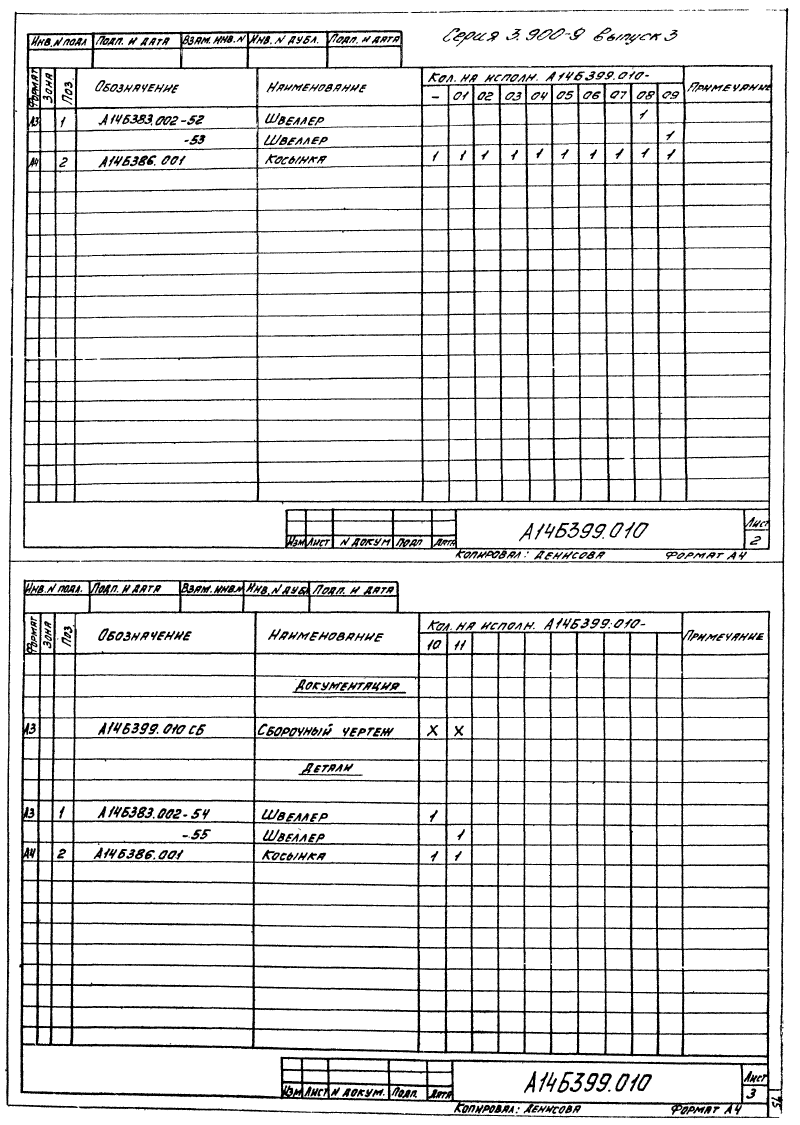 Серия 3.900-9 выпуск 3
Инв. N подл Подп. и дата Взам. инв. N Инв. N дубл. Подп. и дата
Формат Зона Поз. Обозначение Наименование Кол. на исполн. А14Б399.010- Примечание
- 01 02 03 04 05 06 07 08 09
А3 1 А14Б383.002-52 Швеллер 1
-53 Швеллер 1
А4 2 А14Б386.001 Косынка 1 1 1 1 1 1 1 1 1 1
Изм Лист N докум Подп Дата А14Б399.010 Лист 2
Копировал: Денисова Формат А4
Инв. N подл. Подп. и дата Взам. инв. N Инв. N дубл Подп. и дата
Формат Зона Поз. Обозначение Наименование Кол. на исполн. А14Б399.010- Примечание
10 11
Документация
А3 А14Б399.010 СБ Сборочный чертеж Х Х
Детали
А3 1 А14Б383.002-54 Швеллер 1
-55 Швеллер 1
А4 2 А14Б386.001 Косынка 1 1
Изм Лист N докум. Подп. Дата А14Б399.010 Лист 3
Копировал: Денисова Формат А4